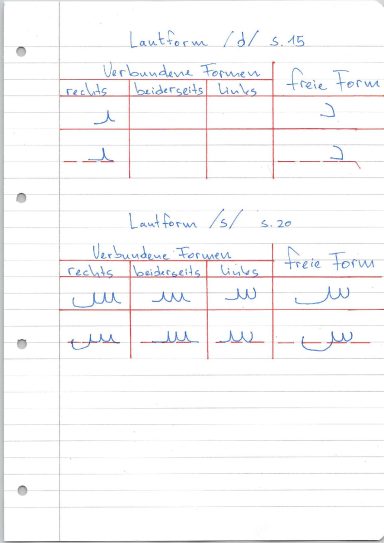 Lautform /d/ S.15
Verbundene Formen
freie Form
rechts beiderseits links
ـد د
ـد د
Lautform /s/ S.20
Verbundene Formen
freie Form
rechts beiderseits links
ـس ـسـ سـ س
ـس ـسـ سـ س